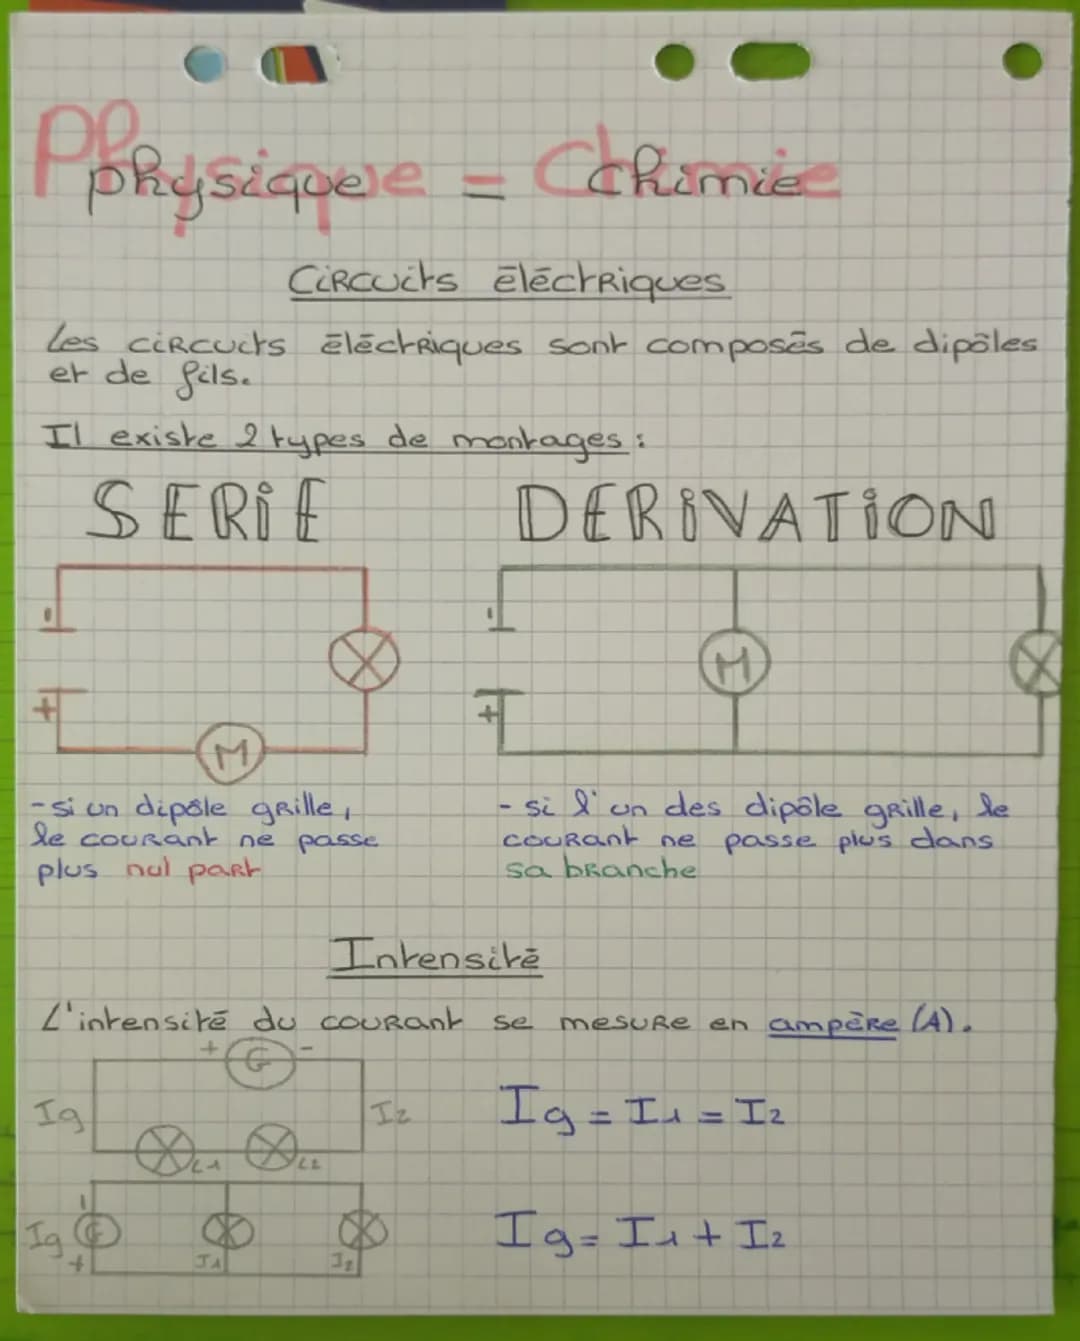 Physique - Chimie
Circuits éléctriques
Les circuits éléctriques sont composés de dipôles
et de fils.
Il existe 2 types de montages :
SERIE DERIVATION
- +
M
- +
M
- si un dipôle grille,
le courant ne passe
plus nul part
- si l'un des dipôle grille, le
courant ne passe plus dans
sa branche
Intensité
L'intensité du courant se mesure en ampère (A).
+ G -
Ig I2
L1 L2
Ig = I1 = I2
-
Ig G
+ I1 I2
Ig = I1 + I2